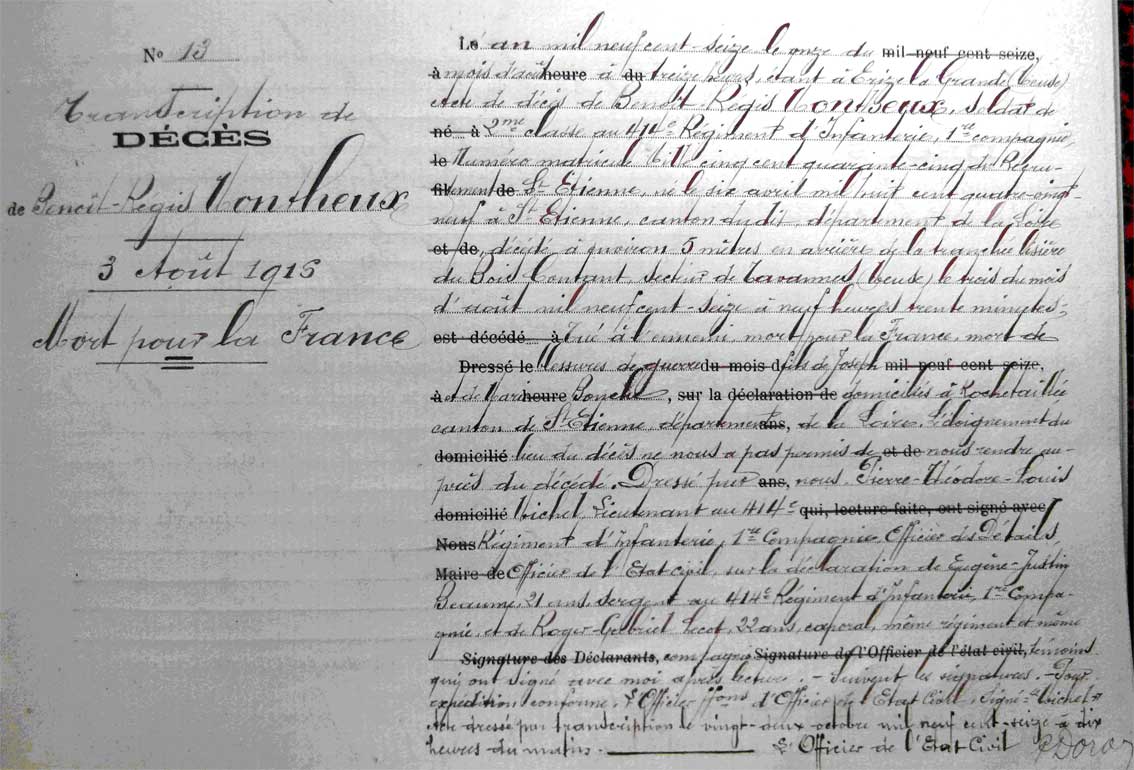 No 13
Transcription de
DÉCÈS
de Benoît-Regis Montheux
3 Août 1916
Mort pour la France
Lé an mil neuf cent-seize le onze du mil neuf cent seize,
à mois d'août heure à du treize heures, étant à Erize la Grande (Meuse)
Acte de décès de Benoît-Regis Montheux, soldat de
né à 2me classe au 414e Régiment d'Infanterie, 1re compagnie,
le Numéro matricule mille cinq cent quarante-cinq du Recru-
fil tement de St Etienne, né le six avril mil huit cent quatre-vingt-
neuf à St Etienne, canton du dit, département de la Loire
et de, décédé à environ 5 mètres en arrière de la tranchée lisière
du Bois Contant, secteur de Tavannes (Meuse) le trois du mois
d'août mil neuf cent-seize à neuf heures trente minutes;
est décédé à tué à l'ennemi mort pour la France, mort de
Dressé le blessures de guerre du mois d fils de Joseph mil neuf cent seize,
à et de Marie heure , sur la déclaration de domiciliés à Rochetaillée
canton de St Etienne, département ans, de la Loire. L'éloignement du
domicilié lieu du décès ne nous a pas permis de et de nous rendre au-
près du décédé. Dressé par ans, nous, Pierre-Théodore-Louis
domicilié Michel Lieutenant au 414e qui, lecture faite, ont signé avec
Nous Régiment d'Infanterie, 1re Compagnie, Officier des Détails,
Maire de Officier de l'Etat Civil, sur la déclaration de Eugène-Justin
Beaume, 21 ans sergent au 414e Régiment d'Infanterie, 1re Compa-
gnie, et de Roger-Gabriel Lecot, 22 ans, caporal, même régiment et même
Signature des Déclarants, compagnie Signature de l'Officier de l'état civil, témoins
qui ont signé avec moi après lecture. - Suivent les signatures. - Pour
expédition conforme. L'Officier ffons d'Officier de l'Etat Civil, Signé: Michel -
Acte dressé par transcription le vingt-deux octobre mil neuf cent-seize à dix
heures du matin. L'Officier de l'Etat Civil